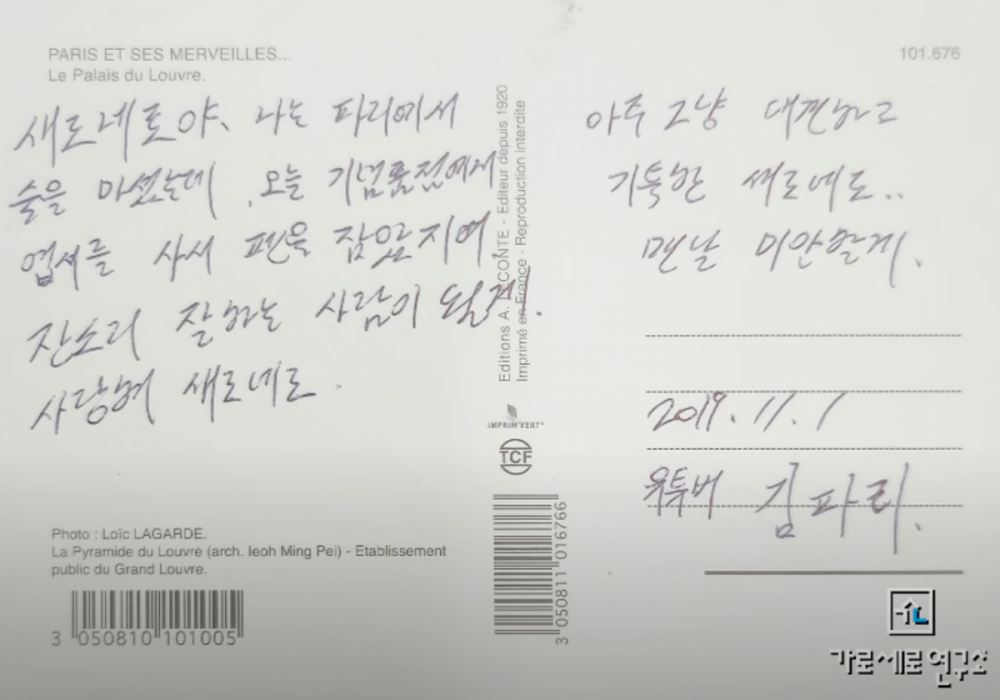 PARIS ET SES MERVEILLES...
Le Palais du Louvre.
101.676
새로네로야, 나는 파리에서
술을 마셨는데, 오늘 기념품점에서
엽서를 사서 펜을 잡았지여
잔소리 잘하는 사람이 될게.
사랑해 새로네로.
아주 그냥 대견하고
기특한 새로네로..
맨날 미안할게.
2019.11.1
유투버 김파리.
Editions A. LECONTE - Editeur depuis 1920
Imprimé en France - Reproduction interdite
IMPRIM'VERT®
TCF
3 050811 016766
Photo : Loïc LAGARDE.
La Pyramide du Louvre (arch. Ieoh Ming Pei) - Etablissement
public du Grand Louvre.
3 050810 101005
가로세로연구소